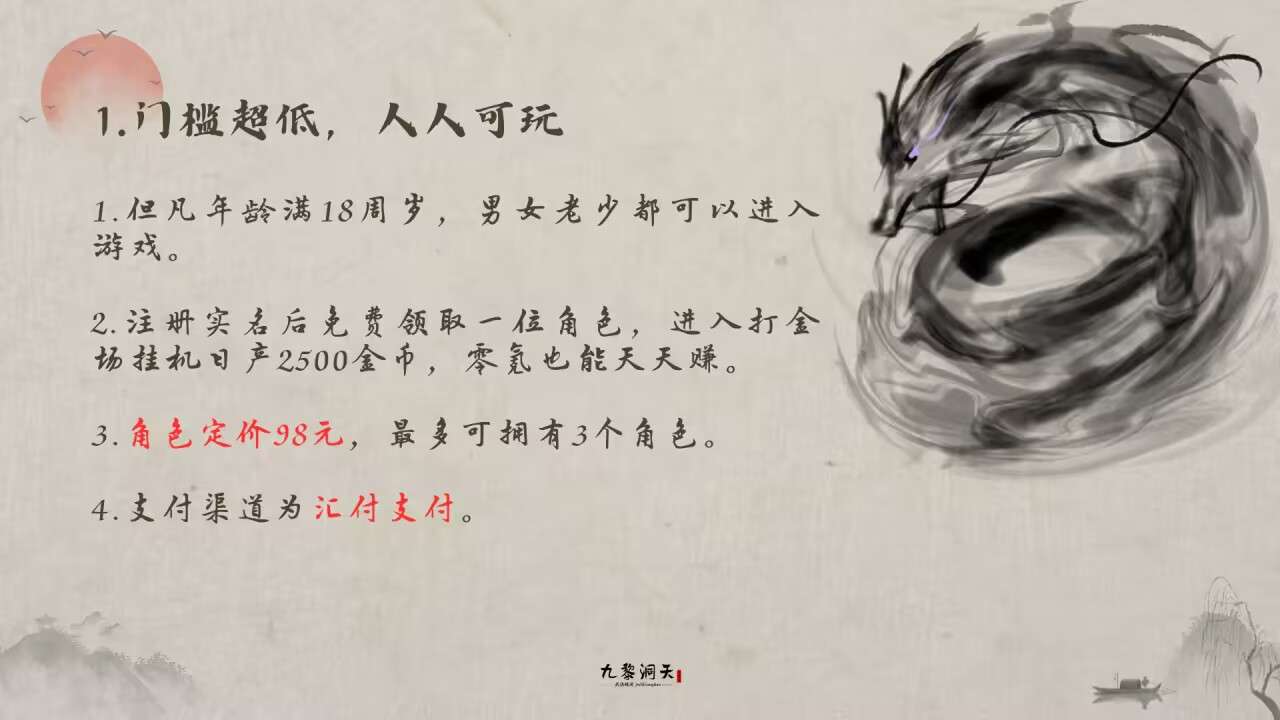 1.门槛超低，人人可玩
1.但凡年龄满18周岁，男女老少都可以进入
游戏。
2.注册实名后免费领取一位角色，进入打金
场挂机日产2500金币，零氪也能天天赚。
3.角色定价98元，最多可拥有3个角色。
4.支付渠道为汇付支付。
九黎洞天